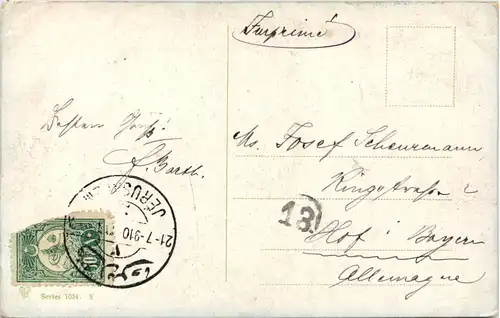 Imprimé
Besten Gruß!
F. Barth.
Ms. Josef Scheuermann,
Ringstrasse
Hof i Bayern
Allemagne
13
JERUSALEM
21-7-910
10
Series 1024. 5